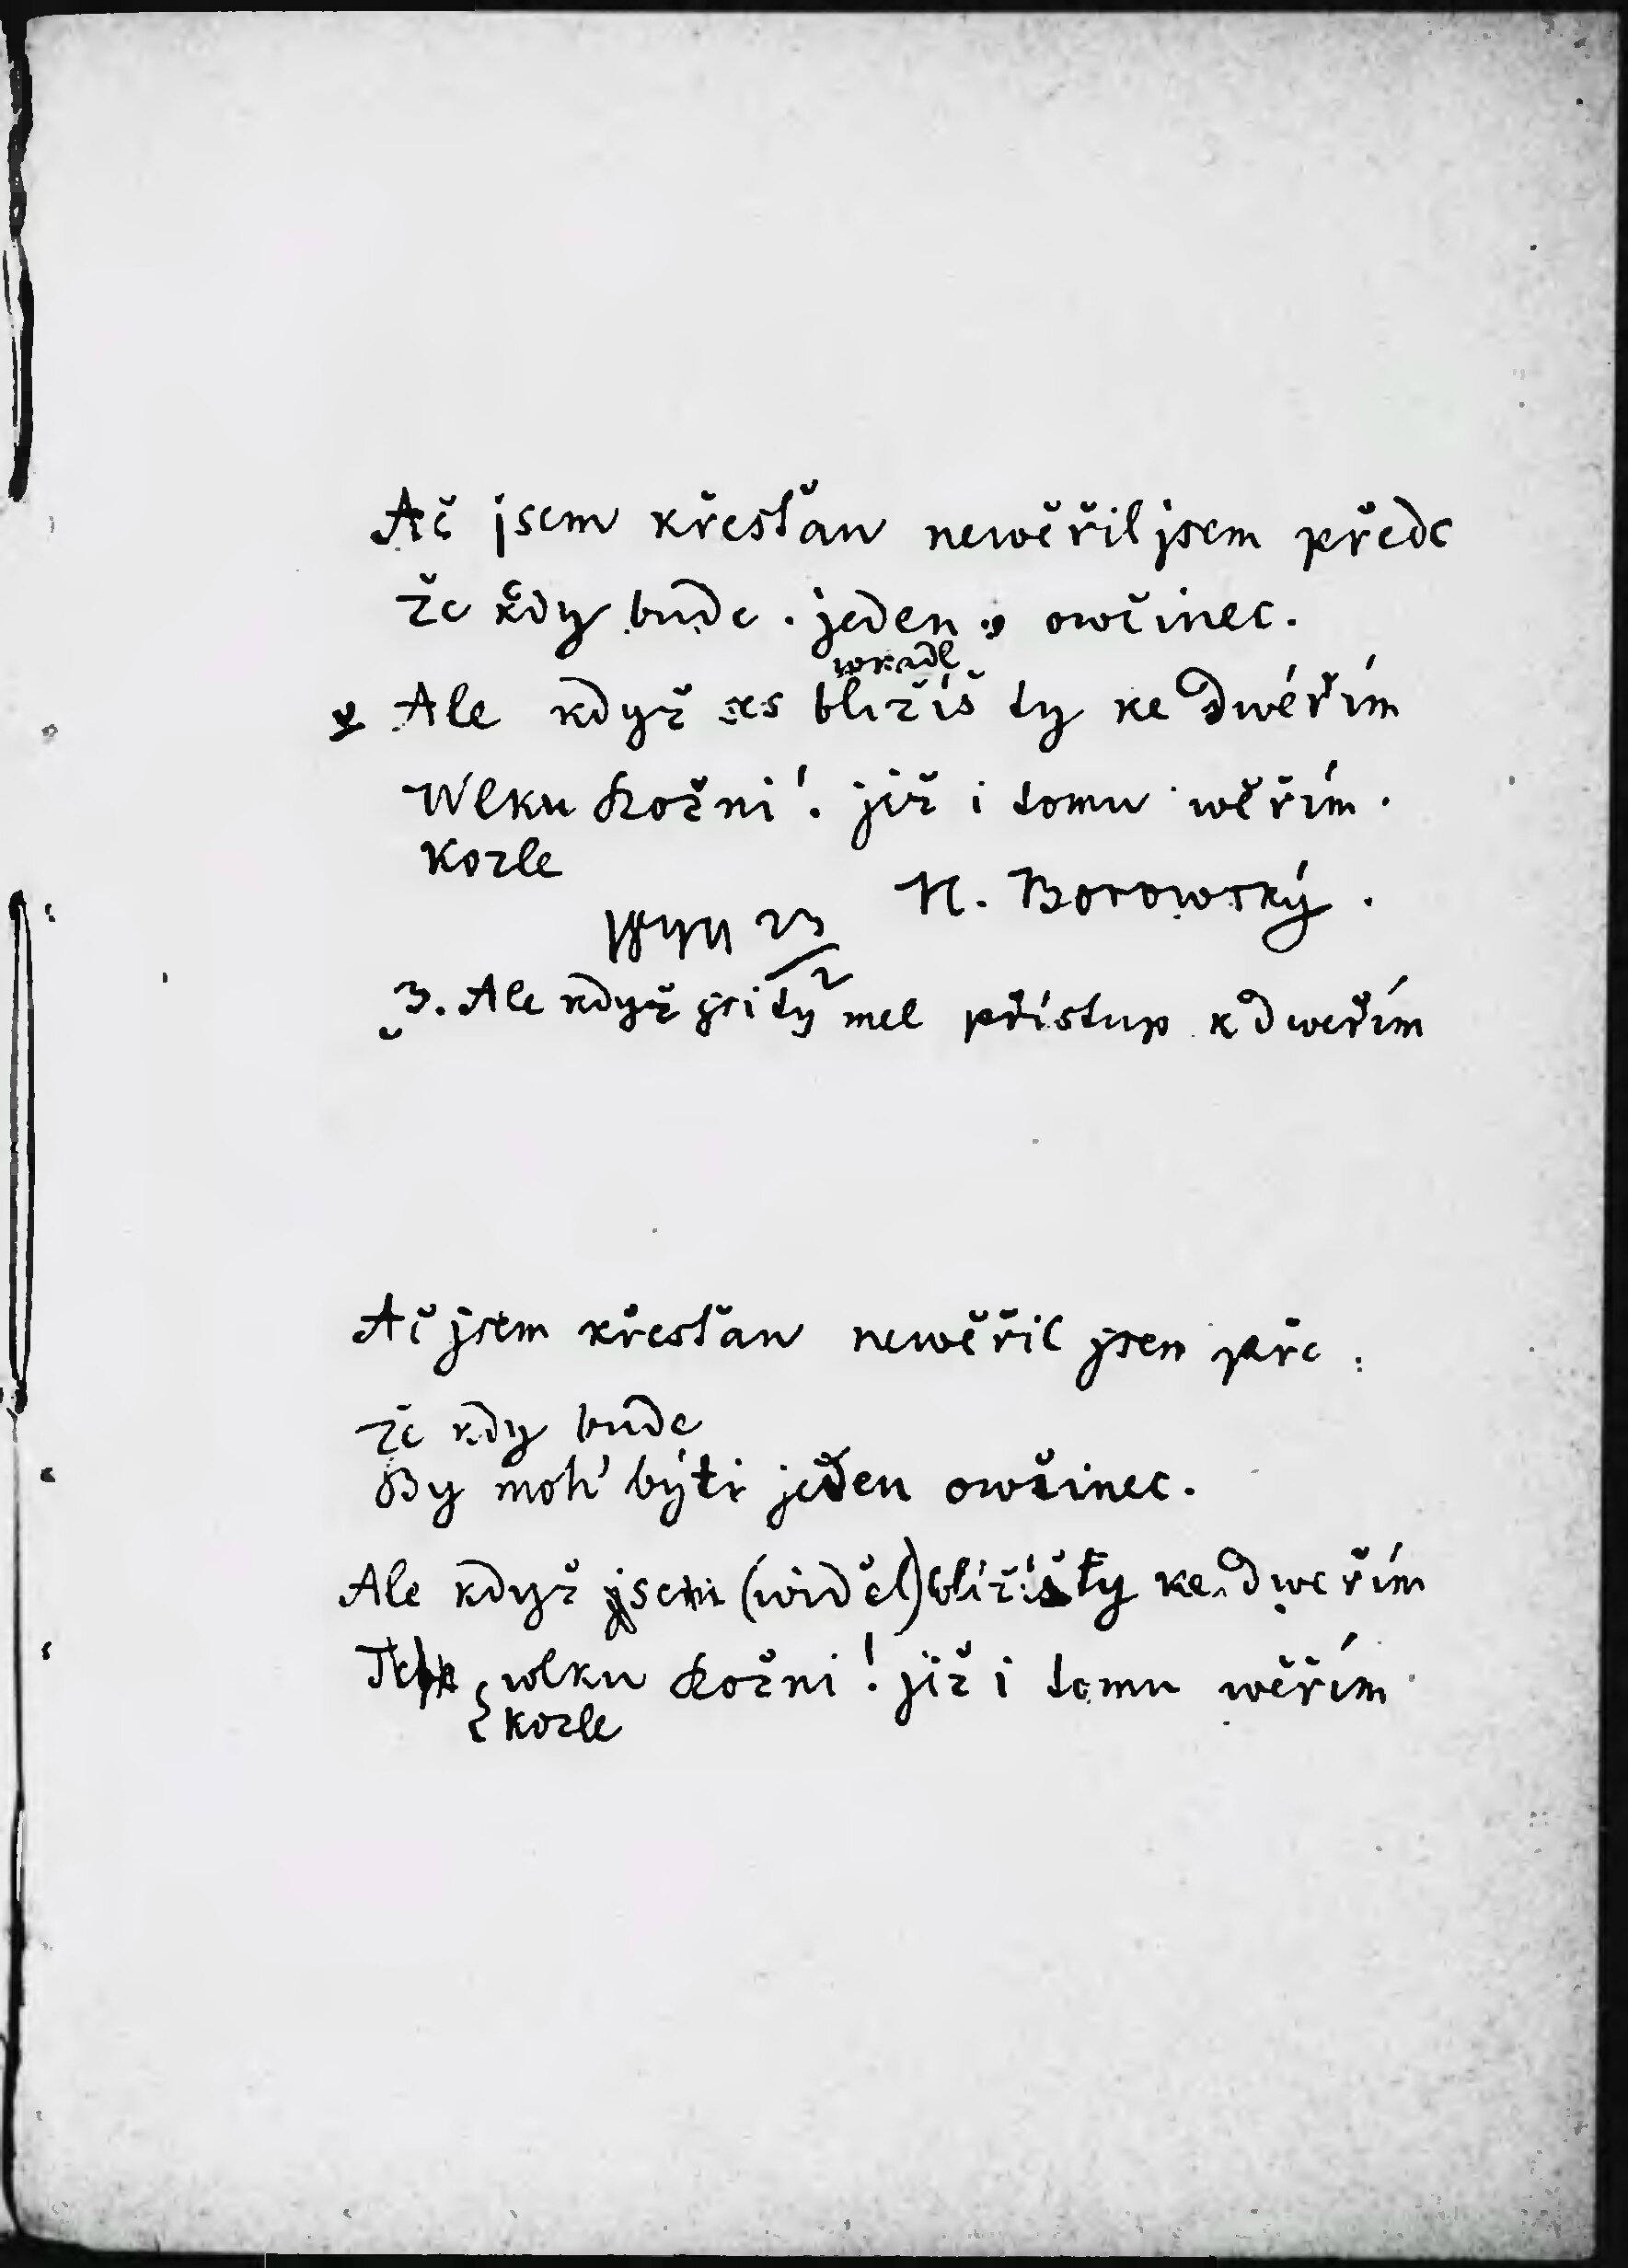 Ač jsem křesťan newěřil jsem předc
že kdy bude . jeden owčinec.
wkradl
Ale když se blížíš ty ke dwéřím
Wlku Božní! již i tomu wěřím.
Kozle
H. Borowský.
3. Ale když jsi ty mel přístup k dweřím
Ač jsem křesťan newěřil jsem pře:
že kdy bude
By moh' býti jeden owčinec.
Ale když jsem (widěl) blížíš ty ke dweřím
wlku Božni! již i tomu wěřím
Kozle